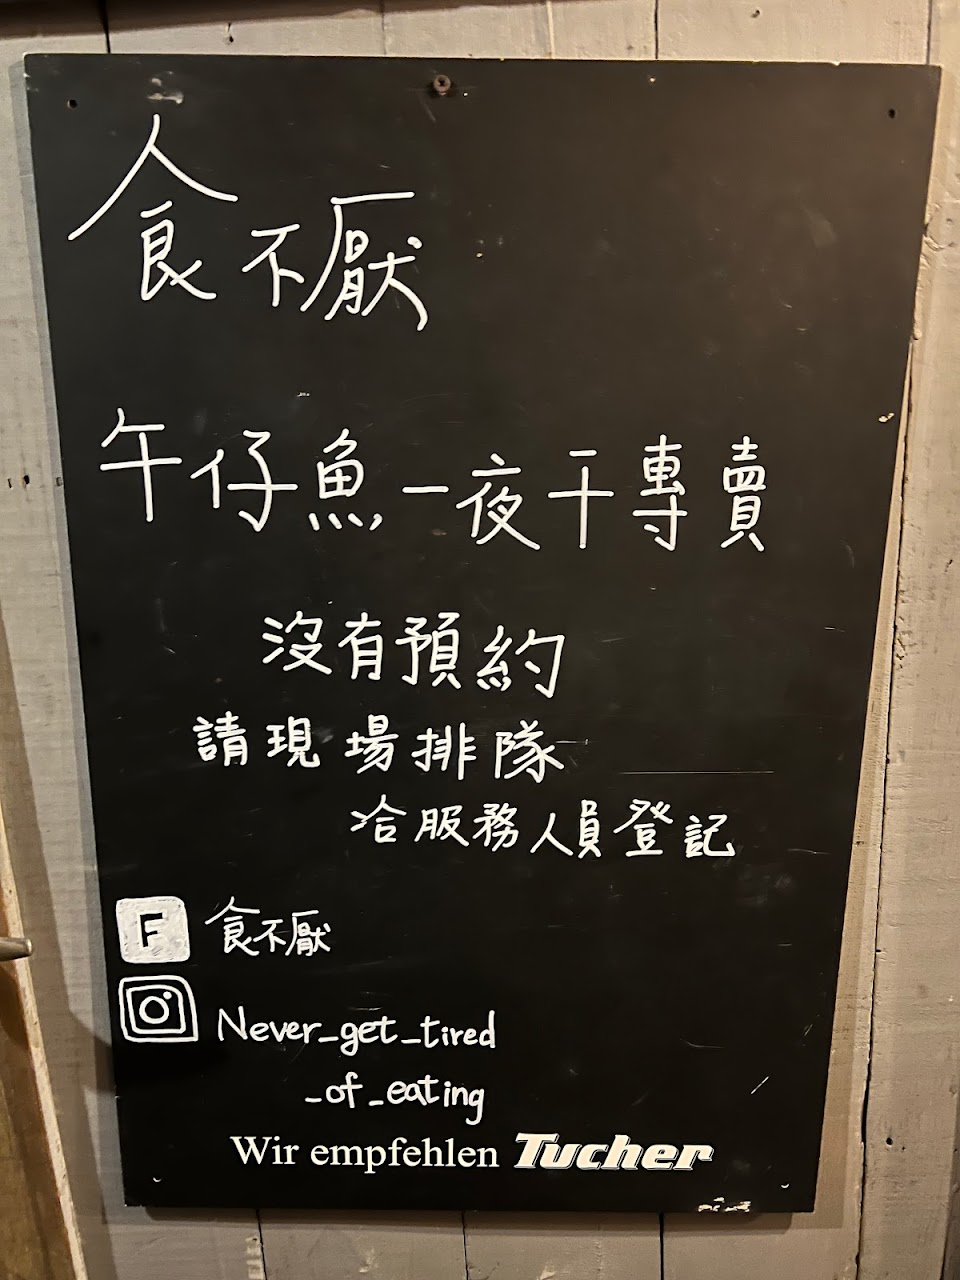 食不厭
午仔魚一夜干專賣
沒有預約
請現場排隊
洽服務人員登記
F 食不厭
Never_get_tired
_of_eating
Wir empfehlen Tucher